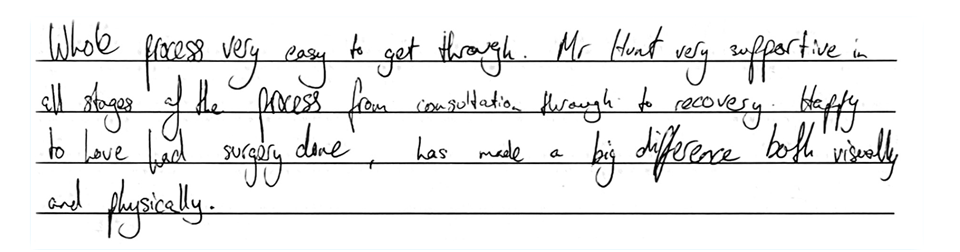 Whole process very easy to get through. Mr Hunt very supportive in
all stages of the process from consultation through to recovery. Happy
to have had surgery done, has made a big difference both visually
and physically.